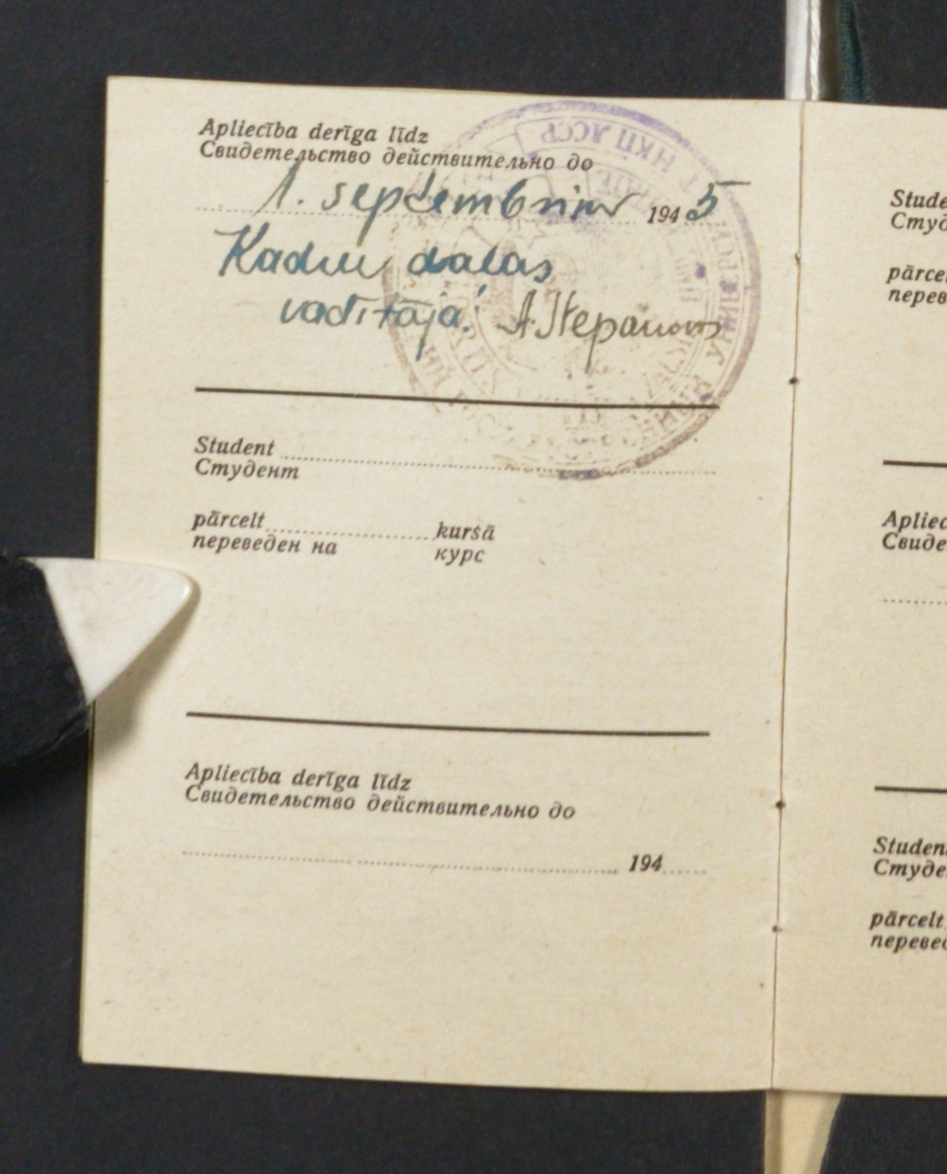 Apliecība derīga līdz
Свидетельство действительно до
1. septembrim 1945
Kadru daļas
vadītāja:
Student
Студент
pārcelt kursā
переведен на курс
Apliecība derīga līdz
Свидетельство действительно до
194
Stude
Студ
pārce
перев
Apliec
Свиде
Studen
Студе
pārcelt
перевед